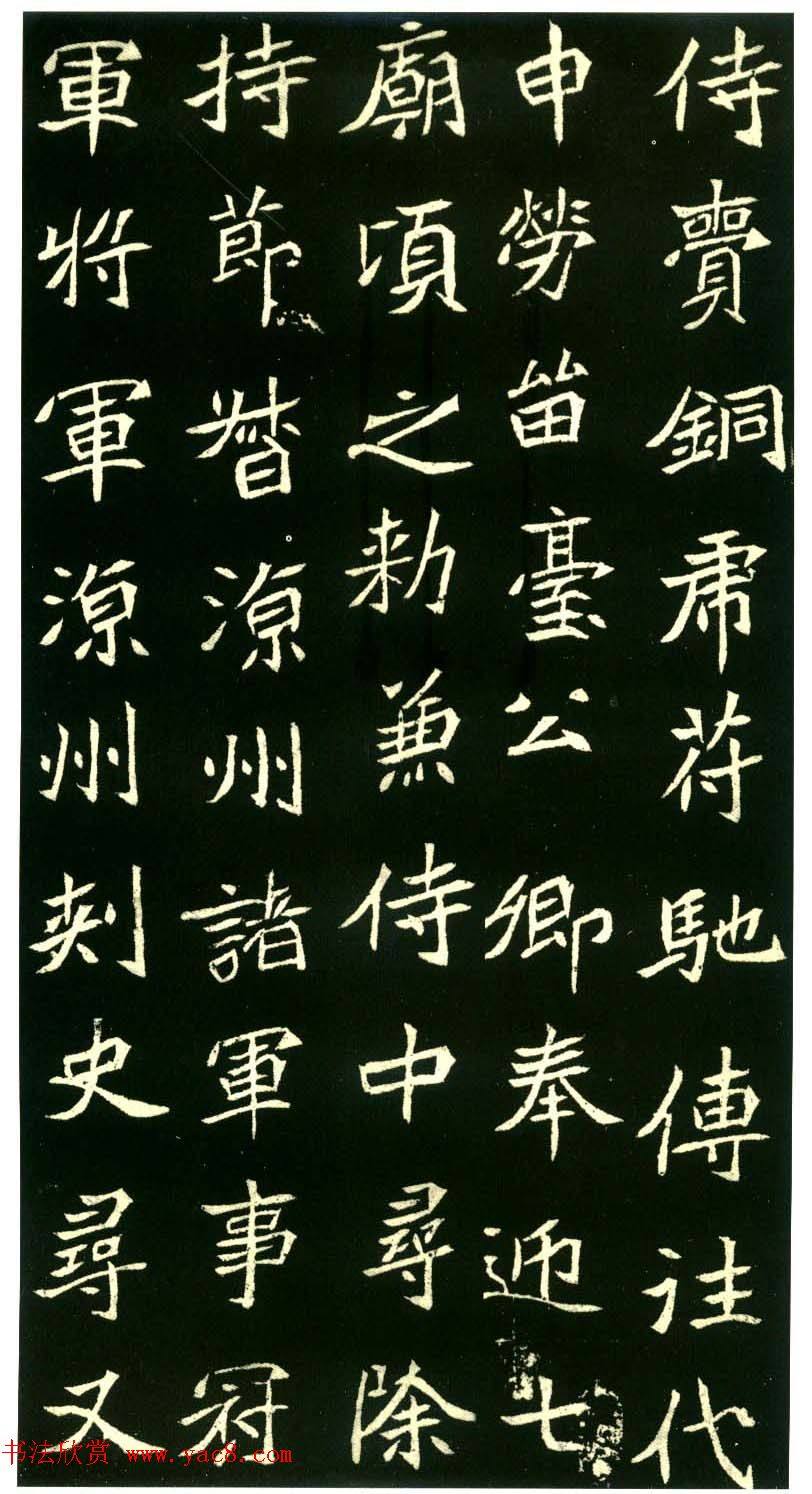 侍賷銅虎苻馳傳詿代
申勞畄臺公卿奉迊七
廟頃之勑兼侍中尋除
持節督涼州諸軍事冠
軍将軍涼州刾史尋又
书法欣赏 www.yac8.com